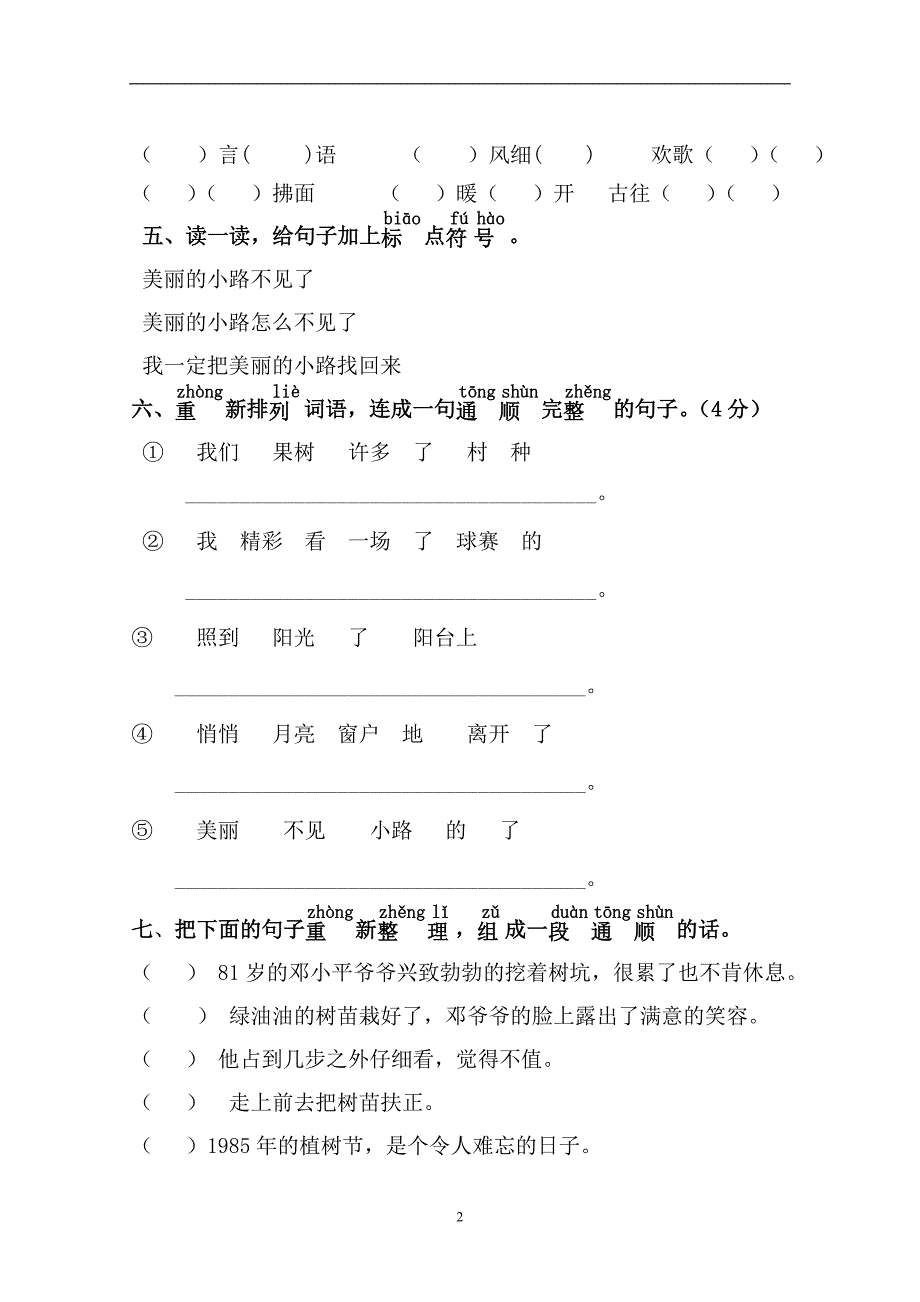 （　　）言(　　)语　　　（　　）风细(　　)　　欢歌（　　）（　　）
（　　）（　　）拂面　　　（　　）暖（　　）开　古往（　　）（　　）
biāo fú hào
五、读一读，给句子加上标 点符 号 。
美丽的小路不见了
美丽的小路怎么不见了
我一定把美丽的小路找回来
zhòng liè tōng shùn zhěng
六、重 新排列 词语，连成一句通 顺 完整 的句子。（4 分）
① 我们 果树 许多 了 村 种
______________________________________。
② 我 精彩 看 一场 了 球赛 的
______________________________________。
③ 照到 阳光 了 阳台上
______________________________________。
④ 悄悄 月亮 窗户 地 离开 了
______________________________________。
⑤ 美丽 不见 小路 的 了
______________________________________。
zhòng zhěng lǐ zǔ duàn tōng shùn
七、把下面的句子重 新整 理 ，组 成一段 通 顺 的话。
（　　） 81 岁的邓小平爷爷兴致勃勃的挖着树坑，很累了也不肯休息。
（　　） 绿油油的树苗栽好了，邓爷爷的脸上露出了满意的笑容。
（　　） 他占到几步之外仔细看，觉得不值。
（　　） 走上前去把树苗扶正。
（　　）1985 年的植树节，是个令人难忘的日子。
2